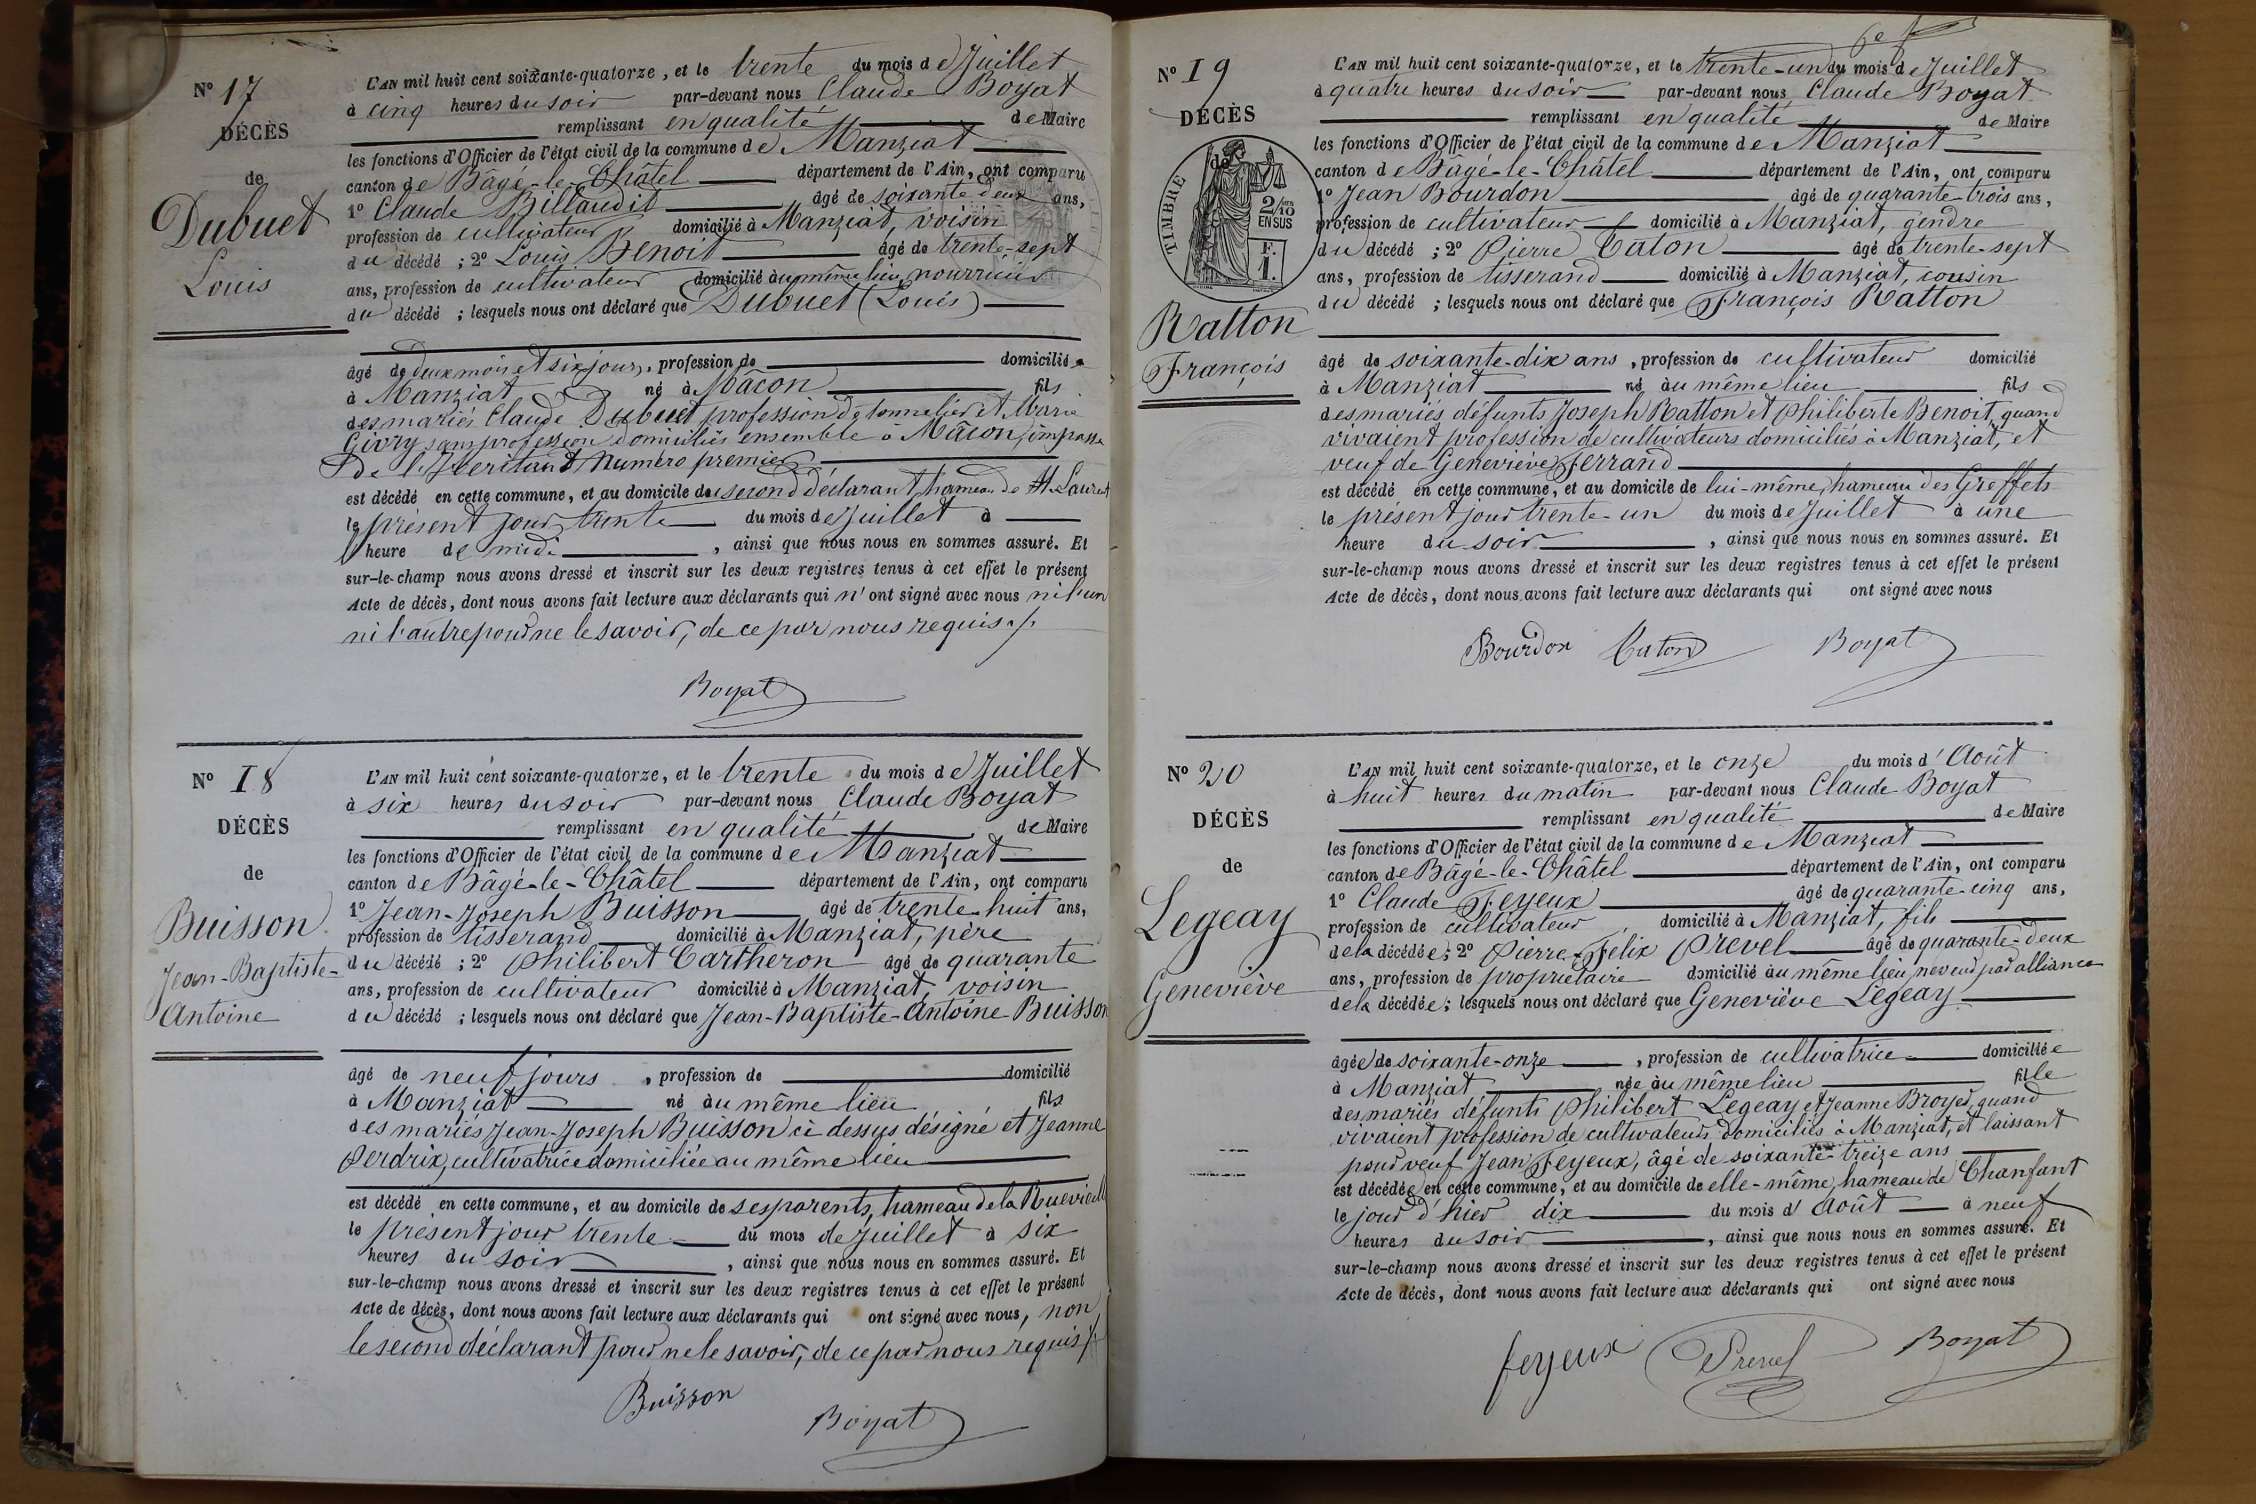 N° 17
DÉCÈS
de
Dubuet
Louis
L'AN mil huit cent soixante-quatorze, et le trente du mois de Juillet
à cinq heures du soir par-devant nous Claude Boyat
remplissant en qualité de Maire
les fonctions d'Officier de l'état civil de la commune de Manziat
canton de Bâgé-le-Châtel département de l'Ain, ont comparu
1° Claude Billaudit âgé de soixante-deux ans,
profession de cultivateur domicilié à Manziat, voisin
du décédé ; 2° Louis Benoit âgé de trente-sept
ans, profession de cultivateur domicilié au même lieu, nourricier
du décédé ; lesquels nous ont déclaré que Dubuet (Louis)
âgé de deux mois et six jours, profession de domicilié
à Manziat né à Mâcon fils
des mariés Claude Dubuet profession de tonnelier et Marie
Givry sans profession domiciliés ensemble à Mâcon, impasse
De l'Héritan Numéro premier
est décédé en cette commune, et au domicile du second déclarant, hameau de St Laurent
le présent jour trente du mois de Juillet à
heure de midi, ainsi que nous nous en sommes assuré. Et
sur-le-champ nous avons dressé et inscrit sur les deux registres tenus à cet effet le présent
Acte de décès, dont nous avons fait lecture aux déclarants qui n'ont signé avec nous ni l'un
ni l'autre pour ne le savoir, de ce par nous requis ./.
Boyat
N° 18
DÉCÈS
de
Buisson
Jean-Baptiste-
Antoine
L'AN mil huit cent soixante-quatorze, et le trente du mois de Juillet
à six heures du soir par-devant nous Claude Boyat
remplissant en qualité de Maire
les fonctions d'Officier de l'état civil de la commune de Manziat
canton de Bâgé-le-Châtel département de l'Ain, ont comparu
1° Jean-Joseph Buisson âgé de trente-huit ans,
profession de tisserand domicilié à Manziat, père
du décédé ; 2° Philibert Cartheron âgé de quarante
ans, profession de cultivateur domicilié à Manziat, voisin
du décédé ; lesquels nous ont déclaré que Jean-Baptiste-Antoine Buisson
âgé de neuf jours, profession de domicilié
à Manziat né au même lieu fils
des mariés Jean-Joseph Buisson ci dessus désigné et Jeanne
Perdrix, cultivatrice domiciliée au même lieu
est décédé en cette commune, et au domicile de ses parents, hameau de la Ruevieille
le présent jour trente du mois de Juillet à six
heures du soir, ainsi que nous nous en sommes assuré. Et
sur-le-champ nous avons dressé et inscrit sur les deux registres tenus à cet effet le présent
Acte de décès, dont nous avons fait lecture aux déclarants qui ont signé avec nous, non
le second déclarant pour ne le savoir, de ce par nous requis ./.
Buisson
Boyat
N° 19
DÉCÈS
de
TIMBRE
2/10
EN SUS
F.
1.
Ratton
François
L'AN mil huit cent soixante-quatorze, et le trente-un du mois de Juillet
à quatre heures du soir par-devant nous Claude Boyat
remplissant en qualité de Maire
les fonctions d'Officier de l'état civil de la commune de Manziat
canton de Bâgé-le-Châtel département de l'Ain, ont comparu
1° Jean Bourdon âgé de quarante-trois ans,
profession de cultivateur domicilié à Manziat, gendre
du décédé ; 2° Pierre Caton âgé de trente-sept
ans, profession de tisserand domicilié à Manziat, cousin
du décédé ; lesquels nous ont déclaré que François Ratton
âgé de soixante-dix ans, profession de cultivateur domicilié
à Manziat né au même lieu fils
des mariés défunts Joseph Ratton et Philiberte Benoit, quand
vivaient profession de cultivateurs domiciliés à Manziat, et
veuf de Geneviève Ferrand
est décédé en cette commune, et au domicile de lui-même, hameau des Greffets
le présent jour trente-un du mois de Juillet à une
heure du soir, ainsi que nous nous en sommes assuré. Et
sur-le-champ nous avons dressé et inscrit sur les deux registres tenus à cet effet le présent
Acte de décès, dont nous avons fait lecture aux déclarants qui ont signé avec nous
Bourdon Caton Boyat
N° 20
DÉCÈS
de
Legeay
Geneviève
L'AN mil huit cent soixante-quatorze, et le onze du mois d'Août
à huit heures du matin par-devant nous Claude Boyat
remplissant en qualité de Maire
les fonctions d'Officier de l'état civil de la commune de Manziat
canton de Bâgé-le-Châtel département de l'Ain, ont comparu
1° Claude Feyeux âgé de quarante-cinq ans,
profession de cultivateur domicilié à Manziat, fils
de la décédée ; 2° Pierre-Félix Prevel âgé de quarante-deux
ans, profession de propriétaire domicilié au même lieu, neveu par alliance
de la décédée ; lesquels nous ont déclaré que Geneviève Legeay
âgée de soixante-onze, profession de cultivatrice domiciliée
à Manziat née au même lieu fille
des mariés défunts Philibert Legeay et Jeanne Broyer, quand
vivaient profession de cultivateurs domiciliés à Manziat, et laissant
pour veuf Jean Feyeux, âgé de soixante-treize ans
est décédée en cette commune, et au domicile de elle-même, hameau de Chanfant
le jour d'hier dix du mois d'Août à neuf
heures du soir, ainsi que nous nous en sommes assuré. Et
sur-le-champ nous avons dressé et inscrit sur les deux registres tenus à cet effet le présent
Acte de décès, dont nous avons fait lecture aux déclarants qui ont signé avec nous
feyeux Prevel Boyat